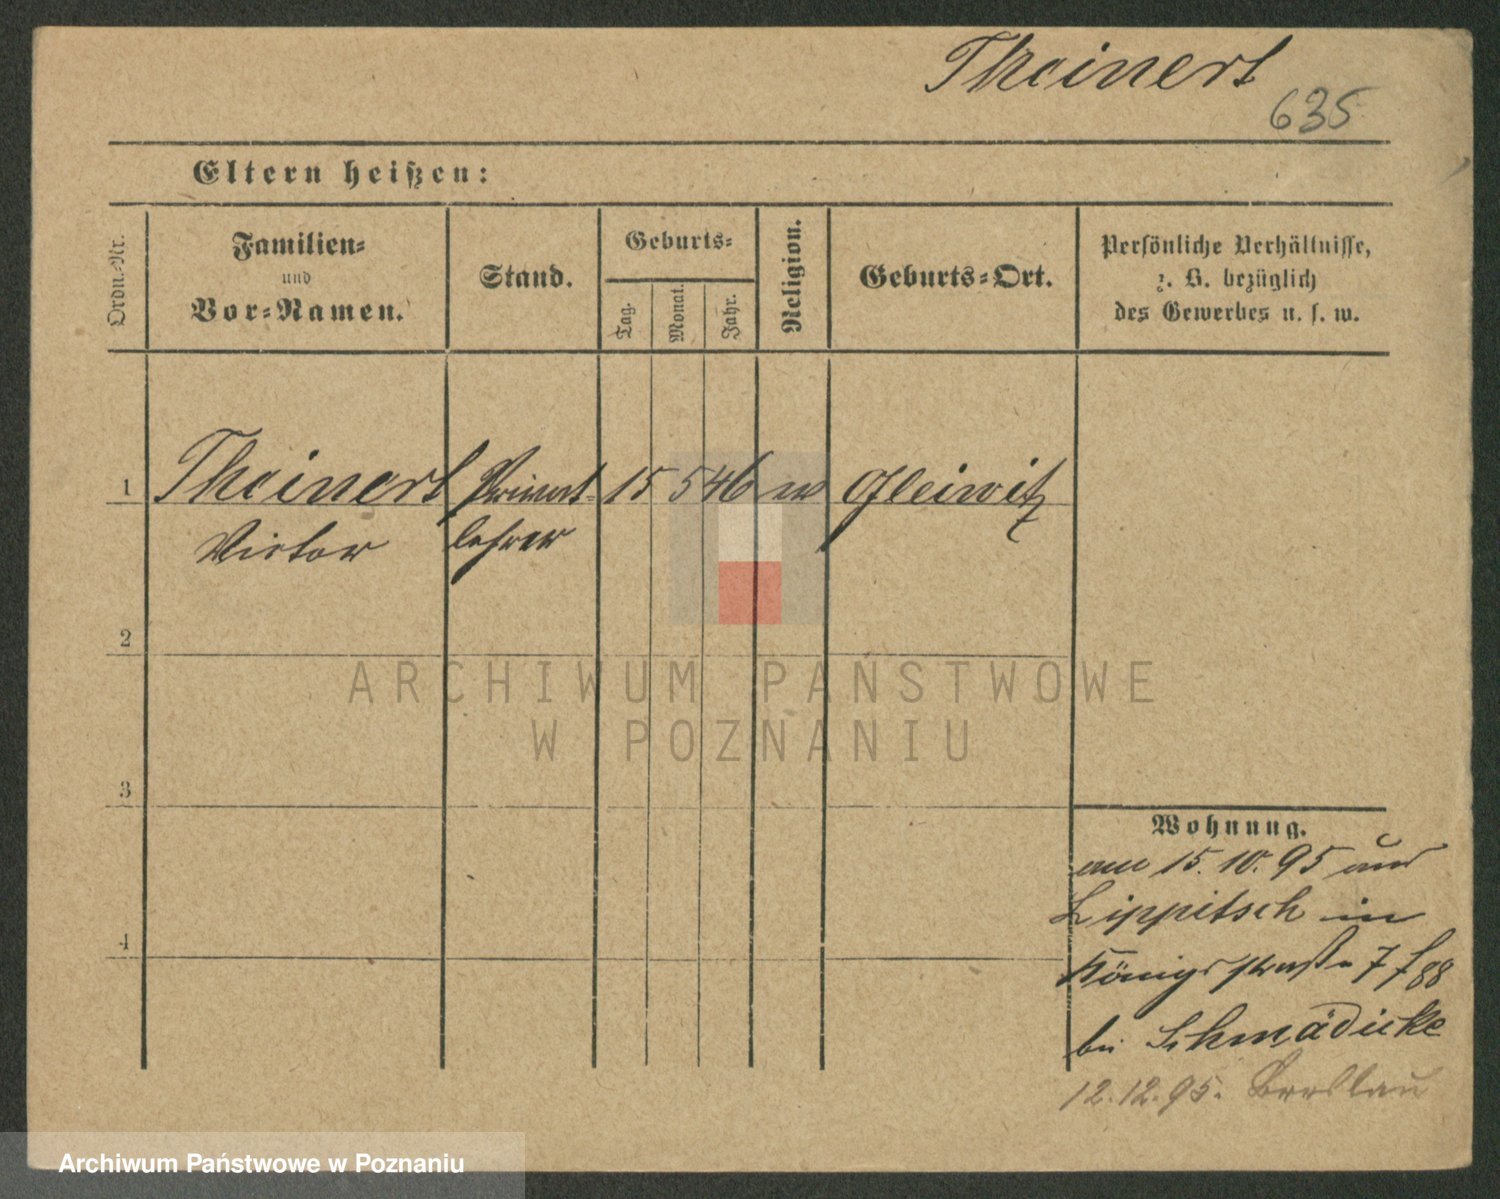 Theinert
635
Eltern heißen:
Ordn.-Nr.
Familien-
und
Vor-Namen.
Stand.
Geburts-
Tag.
Monat.
Jahr.
Religion.
Geburts-Ort.
Persönliche Verhältnisse,
z. B. bezüglich
des Gewerbes u. s. w.
1 Theinert Privat- 15 5 46 Gleiwitz
Victor lehrer
2
3
4
ARCHIWUM PAŃSTWOWE
W POZNANIU
Wohnung.
15.10.95 aus
Lippitsch in
Königsstraße 7
bei Schmädicke
12.12.95. Breslau
Archiwum Państwowe w Poznaniu